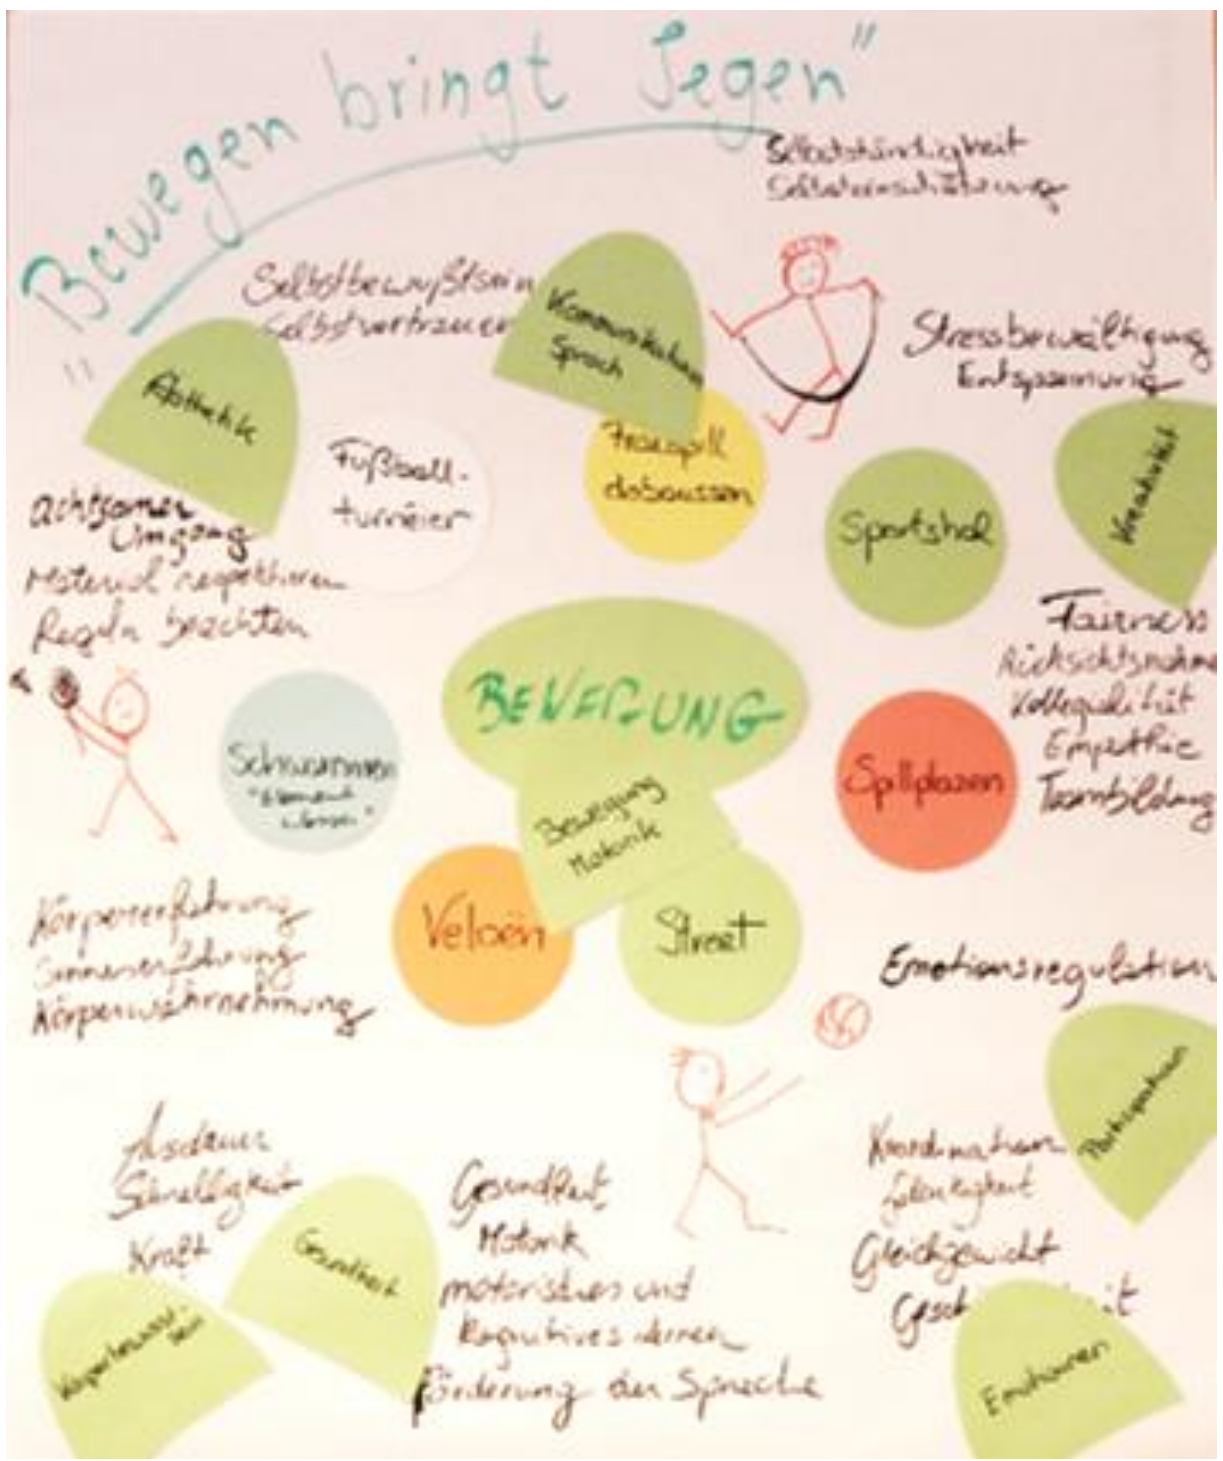 "Bewegen bringt Segen"
Selbstständigkeit
Selbsteinschätzung
Selbstbewußtsein
Selbstvertrauen
Kommunikation
Sprach
Stressbewältigung
Entspannung
Ästhetik
Fußball-
turnéier
Fräispill
dobaussen
Sportshal
Kreativität
achtsamer
Umgang
Material respektieren
Regeln beachten
Fairness
Rücksichtsnahme
Kollegialität
Empathie
Teambildung
BEWEGUNG
Schwammen
"Element
Wasser"
Spillplazen
Bewegung
Motorik
Veloën
Street
Körpererfahrung
Sinneserfahrung
Körperwahrnehmung
Emotionsregulation
Partizipation
Ausdauer
Schnelligkeit
Kraft
Gesundheit
Körperbewusst-
sein
Gesundheit,
Motorik
motorisches und
Kognitives Lernen
Förderung der Sprache
Koordination
Gleichgewicht
Emotionen